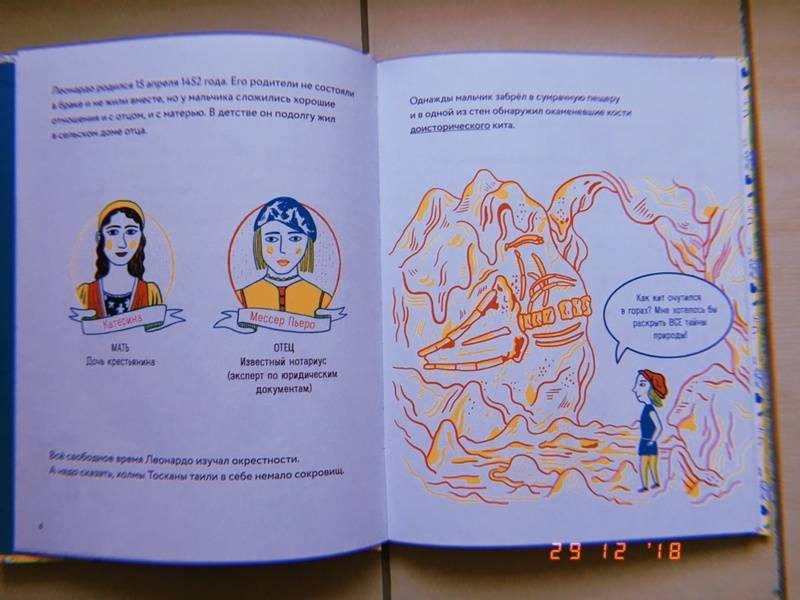 Леонардо родился 15 апреля 1452 года. Его родители не состояли
в браке и не жили вместе, но у мальчика сложились хорошие
отношения и с отцом, и с матерью. В детстве он подолгу жил
в сельском доме отца.
Катерина
МАТЬ
Дочь крестьянина
Мессер Пьеро
ОТЕЦ
Известный нотариус
(эксперт по юридическим
документам)
Всё свободное время Леонардо изучал окрестности.
А надо сказать, холмы Тосканы таили в себе немало сокровищ.
6
Однажды мальчик забрёл в сумрачную пещеру
и в одной из стен обнаружил окаменевшие кости
доисторического кита.
Как кит очутился
в горах? Мне хотелось бы
раскрыть ВСЕ тайны
природы!
29 12 '18